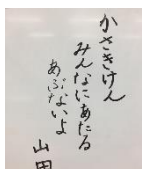 かさきけん
みんなにあたる
あぶないよ
山田